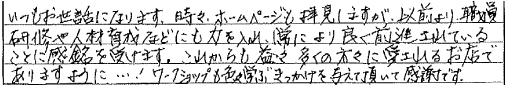 いつもお世話になります。時々、ホームページも拝見しますが、以前より、職員
研修や人材育成などにも力を入れ、常により良く前進されている
ことに感銘を受けます。これからも益々多くの方々に愛されるお店で
ありますように…！ワークショップも色々学ぶきっかけを与えて頂いて感謝です。